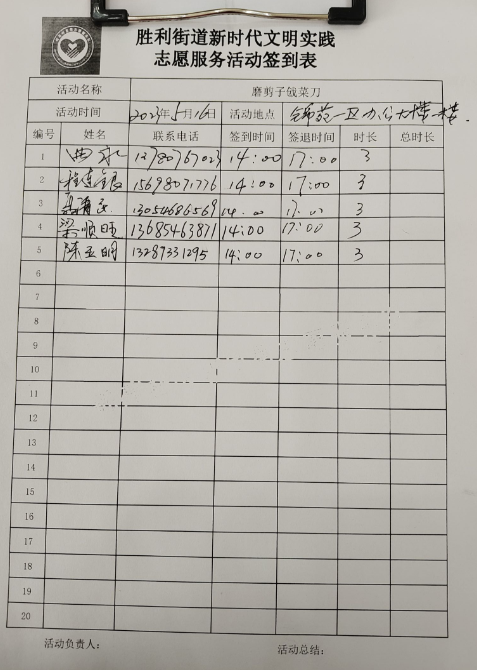 胜利街道新时代文明实践
志愿服务活动签到表
活动名称 磨剪子戗菜刀
活动时间 2023年5月16日 活动地点 锦苑一区办公大楼一楼.
编号 姓名 联系电话 签到时间 签退时间 时长 总时长
1 14:00 17:00 3
2 程连银 15698071776 14:00 17:00 3
3 13054686569 14:00 17:00 3
4 梁顺旺 13685463871 14:00 17:00 3
5 陈玉明 13287331295 14:00 17:00 3
6
7
8
9
10
11
12
13
14
15
16
17
18
19
20
活动负责人: 活动总结: